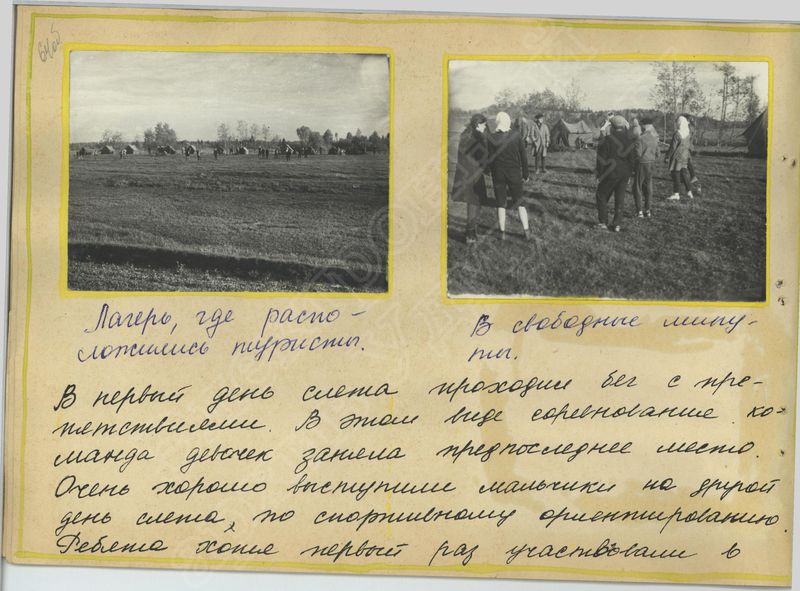 64об
Лагерь, где распо-
ложились туристы.
В свободные мину-
ты.
В первый день слета проходил бег с пре-
пятствиями. В этом виде соревнование ко-
манда девочек заняла предпоследнее место.
Очень хорошо выступили мальчики на другой
день слета, по спортивному ориентированию.
Ребята хотя первый раз участвовали в